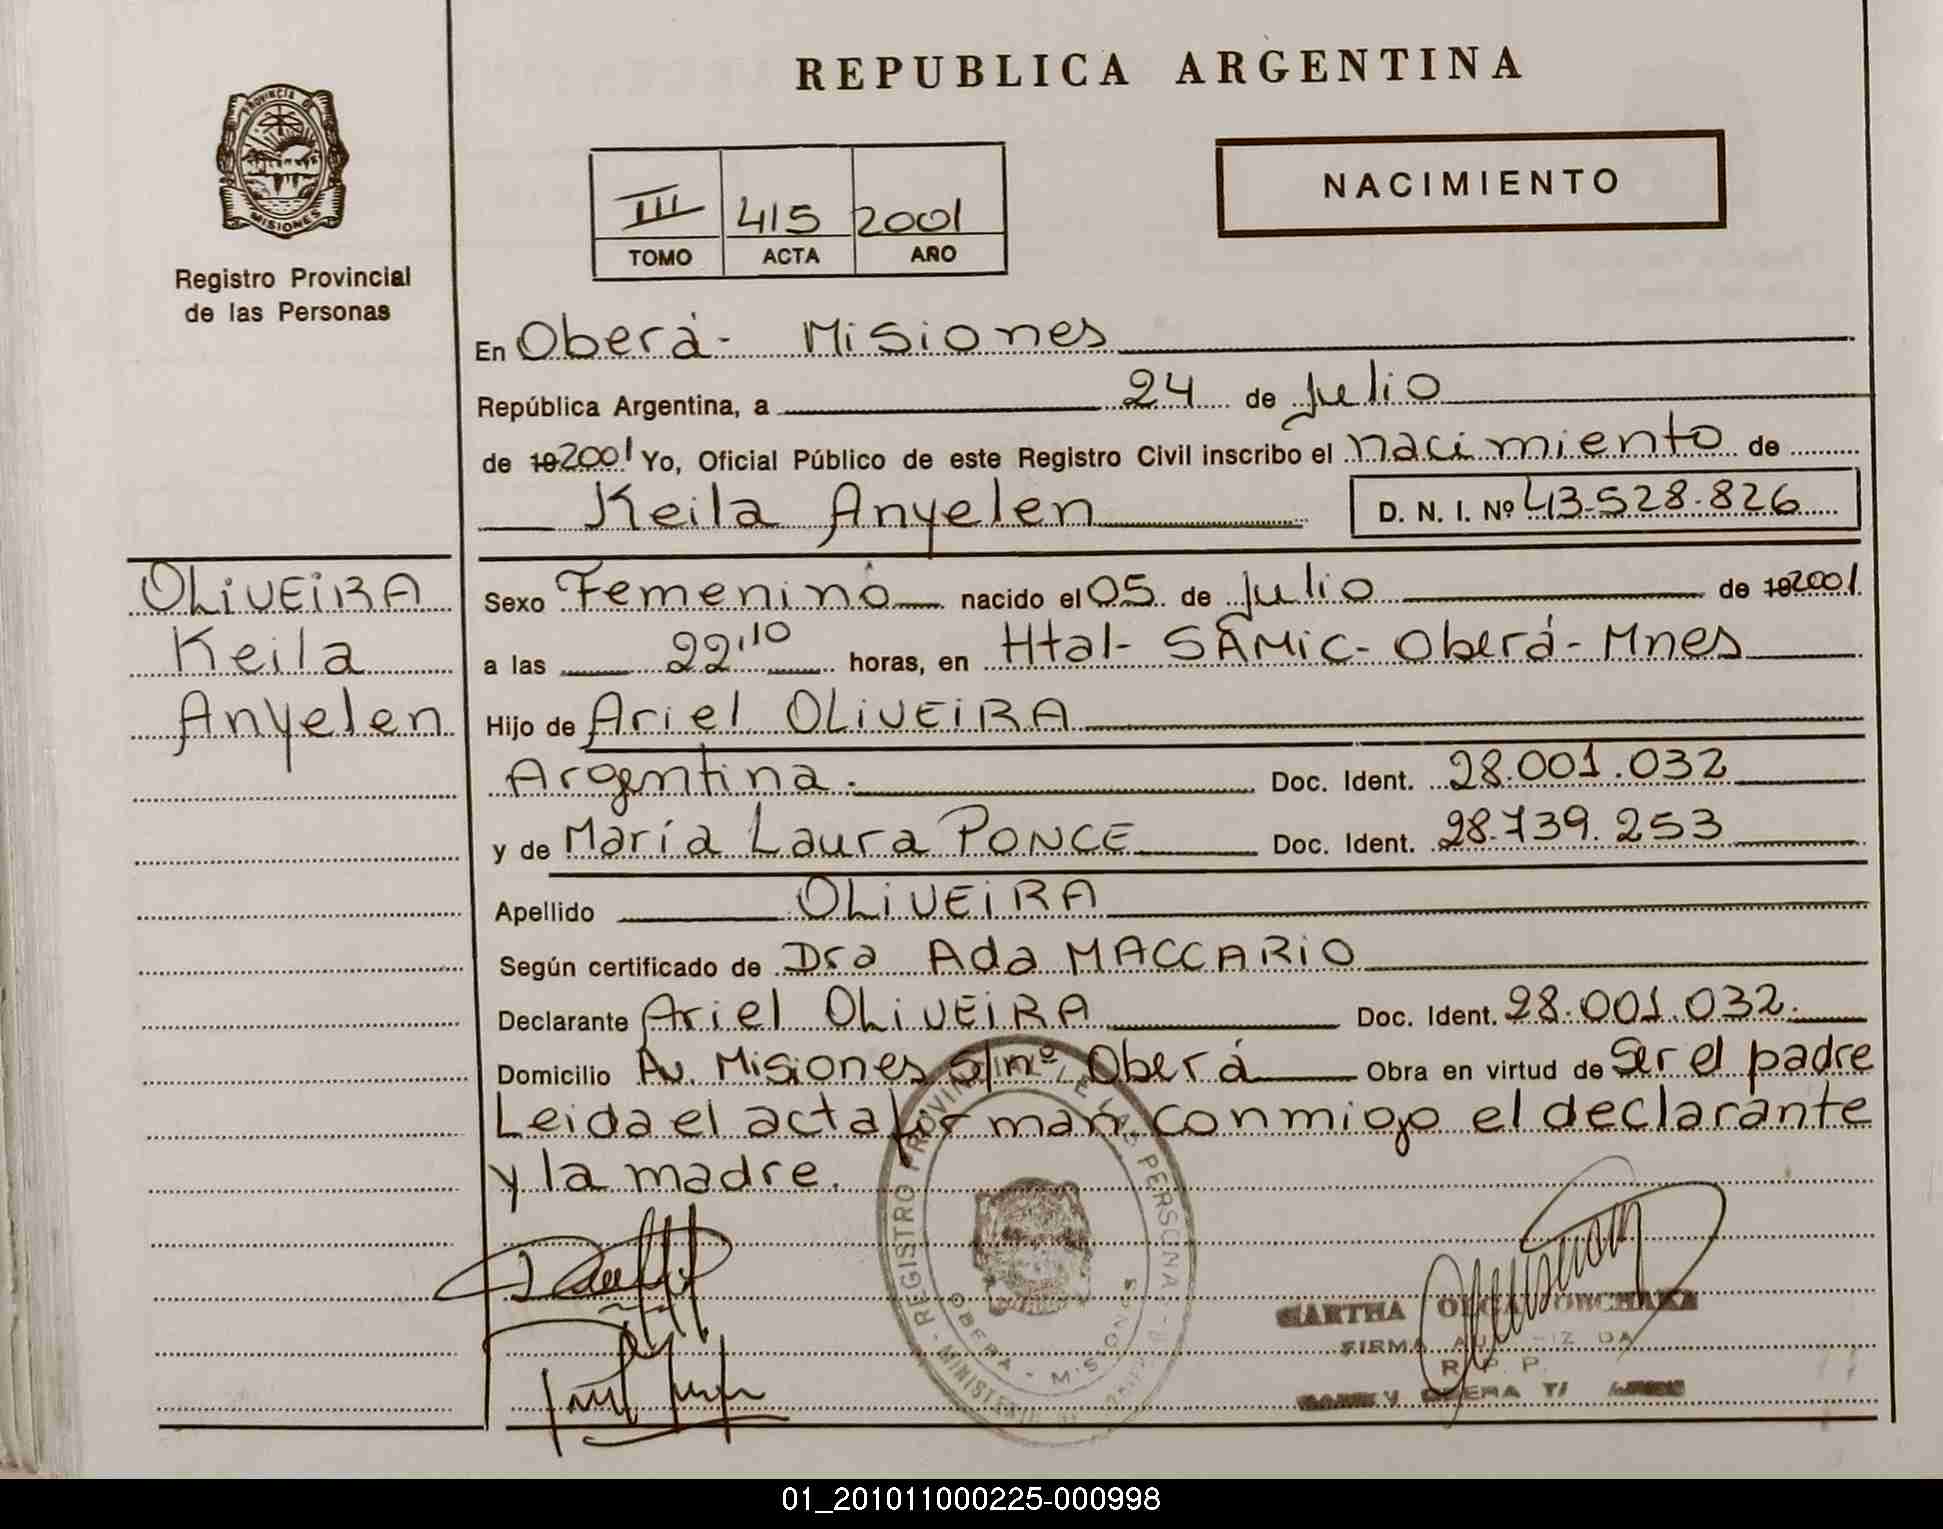 REPUBLICA ARGENTINA
PROVINCIA DE
MISIONES
Registro Provincial
de las Personas
III 415 2001
TOMO ACTA AÑO
NACIMIENTO
En Oberá- Misiones
República Argentina, a 24 de Julio
de 19 2001 Yo, Oficial Público de este Registro Civil inscribo el nacimiento de
Keila Anyelen D. N. I. Nº 43.528.826
OLIVEIRA
Keila
Anyelen
Sexo Femenino nacido el 05 de Julio de 19 2001.
a las 22,10 horas, en Htal- SAMIC- Oberá- Mnes
Hijo de Ariel OLIVEIRA
Argentina. Doc. Ident. 28.001.032
y de María Laura PONCE Doc. Ident. 28.739.253
Apellido OLIVEIRA
Según certificado de Dra Ada MACCARIO
Declarante Ariel OLIVEIRA Doc. Ident. 28.001.032.
Domicilio Av. Misiones S/nº, Oberá Obra en virtud de Ser el padre
Leida el acta firman conmigo el declarante
y la madre.
REGISTRO PROVINCIAL DE LAS PERSONAS
OBERA - MISIONES
MARTHA OLGA
FIRMA AUTORIZADA
R. P. P.
01_201011000225-000998